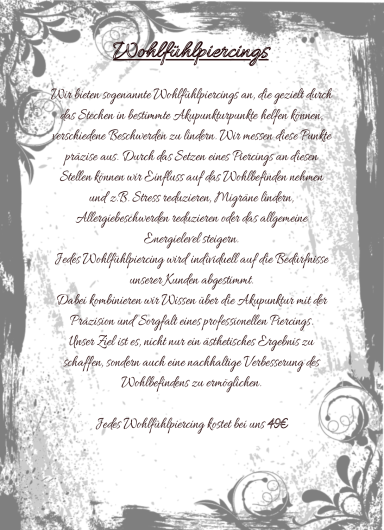 Wohlfühlpiercings
Wir bieten sogenannte Wohlfühlpiercings an, die gezielt durch
das Stechen in bestimmte Akupunkturpunkte helfen können,
verschiedene Beschwerden zu lindern. Wir messen diese Punkte
präzise aus. Durch das Setzen eines Piercings an diesen
Stellen können wir Einfluss auf das Wohlbefinden nehmen
und z.B. Stress reduzieren, Migräne lindern,
Allergiebeschwerden reduzieren oder das allgemeine
Energielevel steigern.
Jedes Wohlfühlpiercing wird individuell auf die Bedürfnisse
unserer Kunden abgestimmt.
Dabei kombinieren wir Wissen über die Akupunktur mit der
Präzision und Sorgfalt eines professionellen Piercings.
Unser Ziel ist es, nicht nur ein ästhetisches Ergebnis zu
schaffen, sondern auch eine nachhaltige Verbesserung des
Wohlbefindens zu ermöglichen.
Jedes Wohlfühlpiercing kostet bei uns 49€